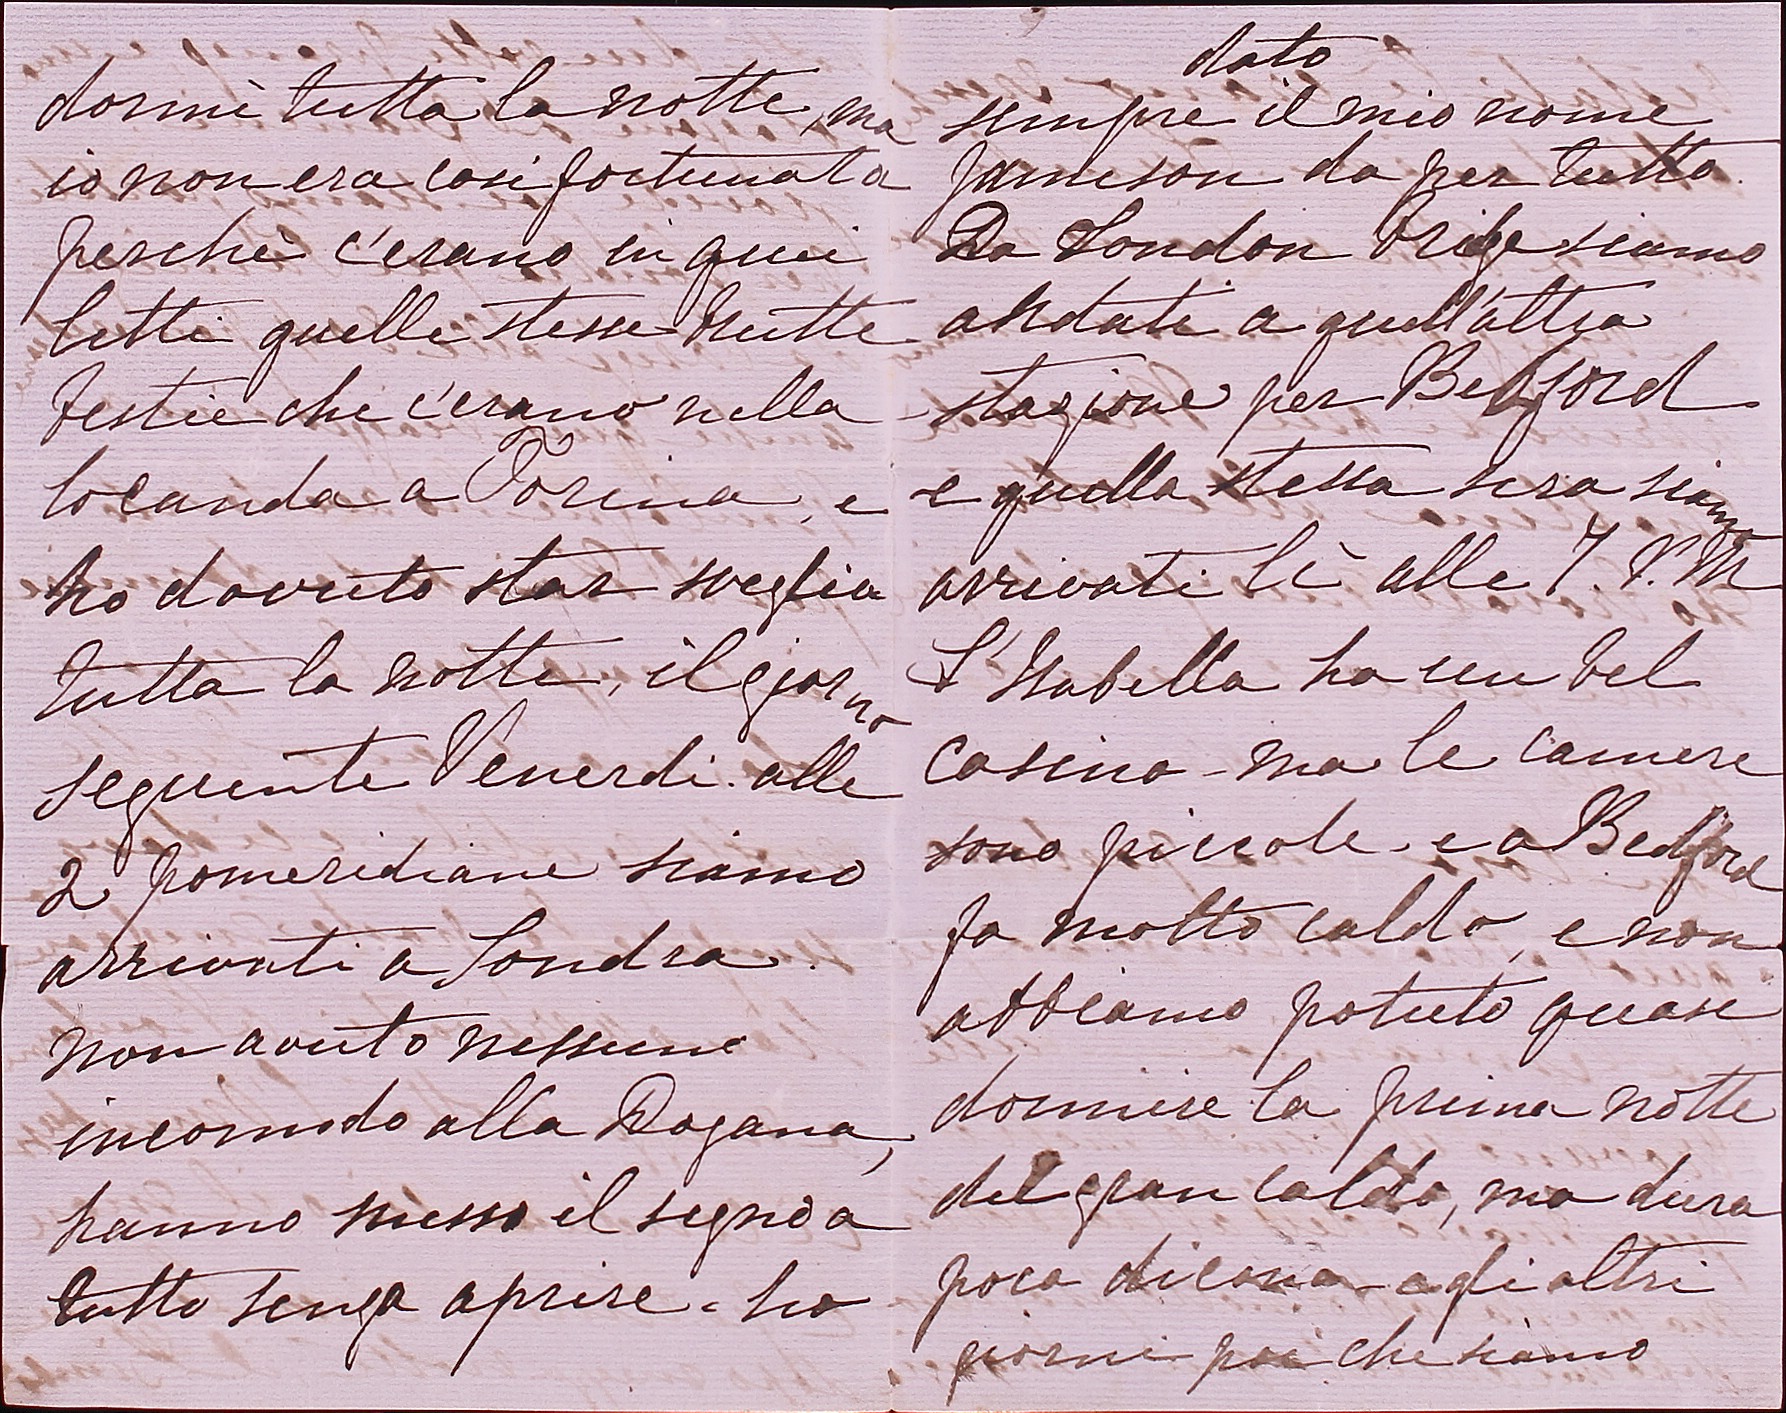 dormì tutta la notte, ma
io non era così fortunata
perchè c'erano in quei
letti quelle stesse brutte
bestie che c'erano nella
locanda a Torina, e
ho dovuto star sveglia
tutta la notte, il giorno
seguente Venerdi alle
2 pomeridiane siamo
arrivati a Londra.
non avuto nessune
incomodo alla Dogana,
hanno messo il segno a
tutto senza aprire - ho
dato
sempre il mio nome
Jameson da per tutto.
Da London Brige siamo
andati a quell'altra
stazione per Bedford
e quella stessa sera siamo
arrivati lì alle 7. P.M
L'Isabella ha un bel
casino - ma le camere
sono piccole. e a Bedford
fa molto caldo, e non
abbiamo potuto quasi
dormire la prima notte
del gran caldo, ma dura
poco dicono - agli altri
giorni poi che siamo